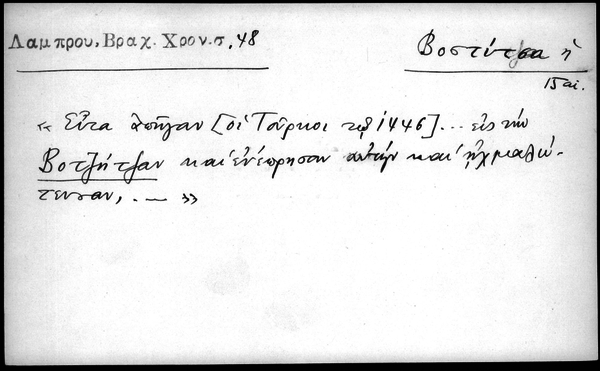 Λαμπρου, Βραχ. Χρον. σ. 48
Βοστίτσα ἡ
15 αἰ.
« Εἶτα ἀπῆγαν [οἱ Τοῦρκοι τῷ 1446]... εἰς τὴν
Βοτζήτζαν καὶ ἐνέπρησαν αὐτὴν καὶ ᾐχμαλώ-
τευσαν, . — »